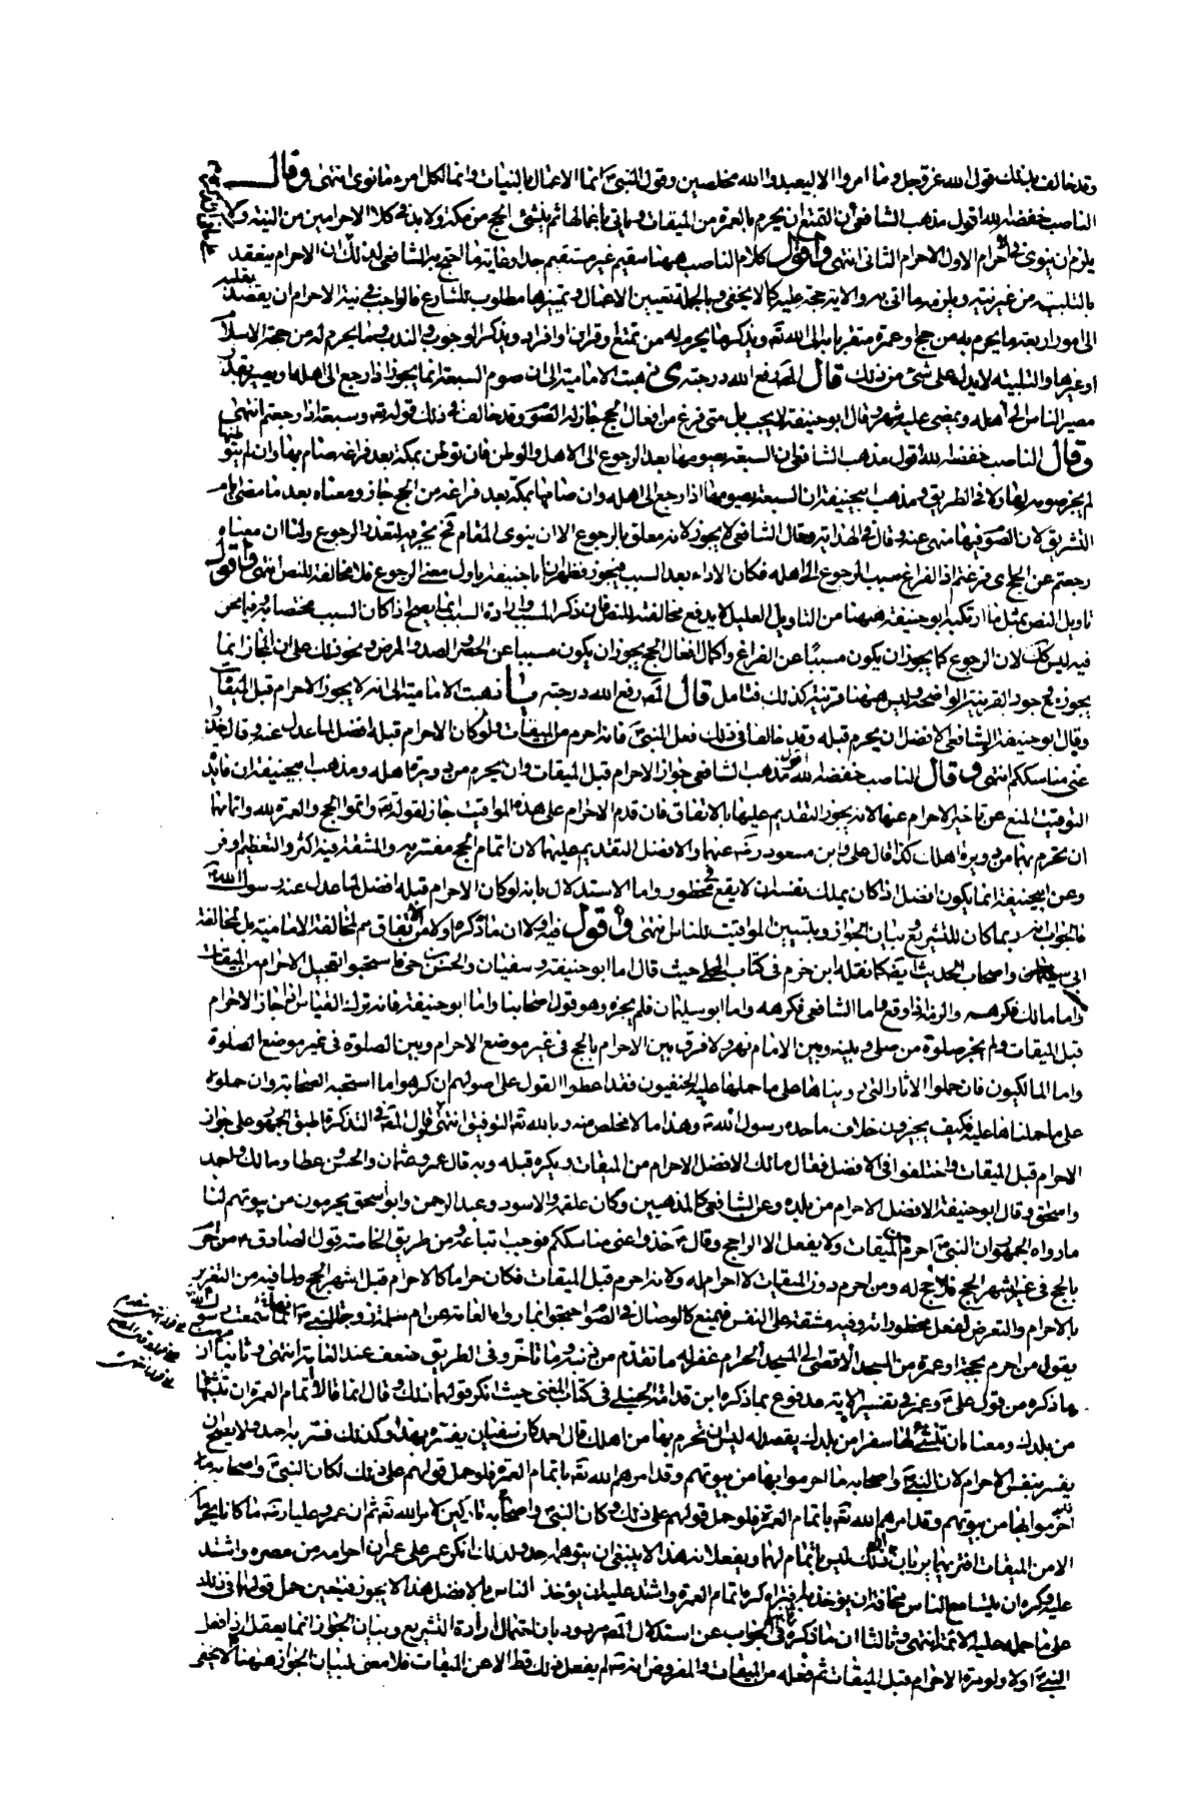 وقد خالف بذلك قول الله عز وجل وما امروا الا ليعبدوا الله مخلصين وقول النبي انما الاعمال بالنيات وانما لكل امرء ما نوى انتهى وقال
الناصب خفضه الله اقول مذهب الشافعي أن التمتع ان يحرم بالعمرة من الميقات وياتي باعمالها ثم ينشئ الحج من مكة ولا بد في كلا الاحرامين من النية ولا
يلزم ان ينوي في احرام الاول الاحرام الثاني انتهى واقول كلام الناصب ههنا سقيم غير مستقيم جدا وغاية ما احتج به الشافعي لذلك ان الاحرام ينعقد
بالتلبية من غير نية ويلزمه ما اتى به والاية حجة عليه كما لا يخفى وبالجملة تعيين الاعمال وتمييزها مطلوب للشارع فالواجب في نية الاحرام ان يقصد
الى امور اربعة ما يحرم به من حج او عمرة متقربا به الى الله تعه ويذكر ما يحرم له من تمتع او قران او افراد ويذكر الوجوب والندب وما يحرم له من حجة الاسلام
او غيرها والتلبية لا يدل على شئ من ذلك قال المص رفع الله درجته ى ذهبت الامامية الى ان صوم السبعة انما يجوز اذا رجع الى اهله او يصبر بقدر
مصير الناس الى اهله او يمضي عليه شهر وقال ابو حنيفة لا يجب بل متى فرغ من افعال الحج جاز له الصوم وقد خالف في ذلك قوله تعه وسبعة اذا رجعتم انتهى
وقال الناصب خفضه الله اقول مذهب الشافعي ان السبعة يصومها بعد الرجوع الى الاهل والوطن فان توطن بمكة بعد فراغه صام بها وان لم يتوطنها
لم يجز صومه بها ولا في الطريق ومذهب ابيحنيفة ان السبعة يصومها اذا رجع الى اهله وان صامها بمكة بعد فراغه من الحج جاز ومعناه بعد ما مضى ايام
التشريق لان الصوم فيها منهي عنه وقال في الهداية وقال الشافعي لا يجوز لانه معلق بالرجوع الا ان ينوي المقام فح يجزيه لتعذر الرجوع ولنا ان معناه
رجعتم عن الحج اى فرغتم اذ الفراغ سبب الرجوع الى اهله فكان الاداء بعد السبب فيجوز فظهر ان ابا حنيفة ياول معنى الرجوع فلا مخالفة للنص انتهى واقول
تاويل النص بمثل ما ارتكبه ابو حنيفة ههنا من التاويل العليل لا يدفع مخالفته للنص فان ذكر المسبب وارادة السبب انما يصح اذا كان السبب مختصا به وما نحن
فيه ليس كك لان الرجوع كما يجوز ان يكون مسببا عن الفراغ واكمال افعال الحج يجوز ان يكون مسببا عن الحصر والصد والمرض ونحو ذلك على ان المجاز انما
يجوز مع وجود القرينة الواضحة وليس ههنا قرينة كذلك فتامل قال المص رفع الله درجته يا ذهبت الامامية الى انه لا يجوز الاحرام قبل الميقات
وقال ابو حنيفة والشافعي الافضل ان يحرم قبله وقد خالفا في ذلك فعل النبي فانه احرم من الميقات ولو كان الاحرام قبله افضل لما عدل عنه وقال خذوا
عني مناسككم انتهى وقال الناصب خفضه الله اقول مذهب الشافعي جواز الاحرام قبل الميقات وان يحرم من دويرة اهله ومذهب ابيحنيفة ان فايدة
التوقيت المنع عن تاخير الاحرام عنها لانه يجوز التقديم عليها بالاتفاق فان قدم الاحرام على هذه المواقيت جاز لقوله تعه واتموا الحج والعمرة لله واتمامهما
ان تحرم بهما من دويرة اهلك كذا قال علي وابن مسعود رضه عنهما والافضل التقديم عليها لان اتمام الحج مفسر به والمشقة فيه اكثر والتعظيم اوفر
وعن ابيحنيفة انما يكون افضل اذا كان يملك نفسه ان لا يقع في محظور واما الاستدلال بانه لو كان الاحرام قبله افضل لما عدل عنه رسول الله
فالجواب انه ربما كان للتشريع وبيان الجواز وبتبيين المواقيت للناس انتهى واقول فيه اولا ان ما ذكره اولا من الاتفاق مم لمخالفة الامامية بل لمخالفة
ابي سليمان واصحاب الحديث ايضا كما نقله ابن حزم في كتاب المحلى حيث قال اما ابو حنيفة وسفيان والحسن بن حي فاستحبوا تعجيل الاحرام من الميقات
واما مالك فكرهه والزمه اذا وقع واما الشافعي فكرهه واما ابو سليمان فلم يجزه وهو قول اصحابنا واما ابو حنيفة فانه ترك القياس اذ اجاز الاحرام
قبل الميقات ولم يجز صلوة من صلى وبينه وبين الامام نهر ولا فرق بين الاحرام بالحج في غير موضع الاحرام وبين الصلوة في غير موضع الصلوة
واما المالكيون فان حملوا الاثار التي روينا ها على ما حملها عليه الحنفيون فقد اعطوا القول على اصولهم ان كرهوا ما استحبه الصحابة وان حملوه
على ما حملناها عليه فكيف يجيزون خلاف ما حده رسول الله وهذا ما لا مخلص منه وبالله تعه التوفيق انتهى وقال المص في التذكرة اطبق الجمهور على جواز
الاحرام قبل الميقات واختلفوا في الافضل فقال مالك الافضل الاحرام من الميقات ويكره قبله وبه قال عمر وعثمان والحسن وعطا ومالك واحمد
واسحق وقال ابو حنيفة الافضل الاحرام من بلده وعن الشافعي كالمذهبين وكان علقمة والاسود وعبد الرحمن وابو اسحق يحرمون من بيوتهم لنا
ما رواه الجمهور ان النبي احرم من الميقات ولا يفعل الا الراجح وقال خذوا عني مناسككم فوجب اتباعه ومن طريق الخاصة قول الصادق من احرم
بالحج في غير اشهر الحج فلا حج له ومن احرم دون الميقات لا احرام له ولانه احرم قبل الميقات فكان حراما كالاحرام قبل اشهر الحج ولما فيه من التغرير
بالاحرام والتعرض لفعل محظوراته وفيه مشقة على النفس فيمنع كالوصال في الصوم احتجوا بما رواه العامة عن ام سلمة زوجة النبي انها سمعت رسول الله
يقول من احرم بحجة او عمرة من المسجد الاقصى الى المسجد الحرام غفر له ما تقدم من ذنبه وما تاخر وفي الطريق ضعف عند العامة انتهى وثانيا ان
ما ذكره من قول علي وعمر في تفسير الاية مدفوع بما ذكره ابن قدامة الحنبلي في كتاب المغني حيث انكر قولهما ذلك وقال انما قالا اتمام العمرة ان تنشئها
من بلدك ومعناه ان تنشئ لها سفرا من بلدك يقصد له ليس ان تحرم بها من اهلك قال احمد كان سفيان يفسره بهذا وكذلك فسره به احمد ولا يصح ان
يفسر بنفس الاحرام لان النبي واصحابه ما احرموا بها من بيوتهم وقد امرهم الله تعه باتمام العمرة فلو حمل قولهم على ذلك لكان النبي واصحابه ما
احرموا بها من بيوتهم وقد امرهم الله تعه باتمام العمرة فلو حمل قولهم على ذلك لكان النبي واصحابه تاركين لامر الله تعه ثم ان عمر وعليا رضه ما كانا يحرمان
الا من الميقات افتراهما يريان ان ذلك ليس باتمام لها ويفعلانه هذا لا ينبغي ان يتوهمه احد ولذلك انكر عمر على عمران احرامه من مصره واشتد
عليه وكره ان يتسامع الناس مخافة ان يؤخذ به افتراه كره اتمام العمرة واشتد عليه ان يؤخذ الناس بالافضل هذا لا يجوز فيتعين حمل قولهما في ذلك
على ما حمله عليه الائمة انتهى وثالثا ان ما ذكره في الجواب عن استدلال المص مردود بان احتمال ارادة التشريع وبيان الجواز انما يعقل اذا فعل
النبي اولا ولو مرة الاحرام قبل الميقات ثم فعله من الميقات والمفروض انه لم يفعل ذلك قط الا من الميقات فلا معنى لبيان الجواز ههنا كما لا يخفى